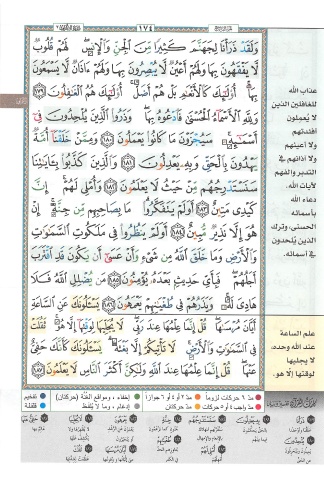 ١٧٤
وَلَقَدْ ذَرَأْنَا لِجَهَنَّمَ كَثِيرًا مِّنَ ٱلْجِنِّ وَٱلْإِنسِ ۖ لَهُمْ قُلُوبٌ
لَّا يَفْقَهُونَ بِهَا وَلَهُمْ أَعْيُنٌ لَّا يُبْصِرُونَ بِهَا وَلَهُمْ ءَاذَانٌ لَّا يَسْمَعُونَ
بِهَآ ۚ أُو۟لَٰٓئِكَ كَٱلْأَنْعَٰمِ بَلْ هُمْ أَضَلُّ ۚ أُو۟لَٰٓئِكَ هُمُ ٱلْغَٰفِلُونَ ١٧٩
وَلِلَّهِ ٱلْأَسْمَآءُ ٱلْحُسْنَىٰ فَٱدْعُوهُ بِهَا ۖ وَذَرُوا۟ ٱلَّذِينَ يُلْحِدُونَ فِىٓ
أَسْمَٰٓئِهِۦ ۚ سَيُجْزَوْنَ مَا كَانُوا۟ يَعْمَلُونَ ١٨٠ وَمِمَّنْ خَلَقْنَآ أُمَّةٌ
يَهْدُونَ بِٱلْحَقِّ وَبِهِۦ يَعْدِلُونَ ١٨١ وَٱلَّذِينَ كَذَّبُوا۟ بِـَٔايَٰتِنَا
سَنَسْتَدْرِجُهُم مِّنْ حَيْثُ لَا يَعْلَمُونَ ١٨٢ وَأُمْلِى لَهُمْ ۚ إِنَّ
كَيْدِى مَتِينٌ ١٨٣ أَوَلَمْ يَتَفَكَّرُوا۟ ۗ مَا بِصَاحِبِهِم مِّن جِنَّةٍ ۚ إِنْ
هُوَ إِلَّا نَذِيرٌ مُّبِينٌ ١٨٤ أَوَلَمْ يَنظُرُوا۟ فِى مَلَكُوتِ ٱلسَّمَٰوَٰتِ
وَٱلْأَرْضِ وَمَا خَلَقَ ٱللَّهُ مِن شَىْءٍ وَأَنْ عَسَىٰٓ أَن يَكُونَ قَدِ ٱقْتَرَبَ
أَجَلُهُمْ ۖ فَبِأَىِّ حَدِيثٍۭ بَعْدَهُۥ يُؤْمِنُونَ ١٨٥ مَن يُضْلِلِ ٱللَّهُ فَلَا
هَادِىَ لَهُۥ ۚ وَيَذَرُهُمْ فِى طُغْيَٰنِهِمْ يَعْمَهُونَ ١٨٦ يَسْـَٔلُونَكَ عَنِ ٱلسَّاعَةِ
أَيَّانَ مُرْسَىٰهَا ۖ قُلْ إِنَّمَا عِلْمُهَا عِندَ رَبِّى ۖ لَا يُجَلِّيهَا لِوَقْتِهَآ إِلَّا هُوَ ۚ ثَقُلَتْ
فِى ٱلسَّمَٰوَٰتِ وَٱلْأَرْضِ ۚ لَا تَأْتِيكُمْ إِلَّا بَغْتَةً ۗ يَسْـَٔلُونَكَ كَأَنَّكَ حَفِىٌّ
عَنْهَا ۖ قُلْ إِنَّمَا عِلْمُهَا عِندَ ٱللَّهِ وَلَٰكِنَّ أَكْثَرَ ٱلنَّاسِ لَا يَعْلَمُونَ ١٨٧
عذاب الله
للغافلين الذين
لا يعملون
أفئدتهم
ولا أعينهم
ولا آذانهم في
التدبر والفهم
لآيات الله.
دعاء الله
بأسمائه
الحسنى، وترك
الذين يلحدون
في أسمائه.
علم الساعة
عند الله وحده،
لا يجليها
لوقتها إلا هو.
مد ٦ حركات لزوماً
مد ٢ أو ٤ أو ٦ جوازاً
إخفاء، ومواقع الغنة (حركتان)
تفخيم
مد واجب ٤ أو ٥ حركات
مد حركتان
إدغام، وما لا يلفظ
قلقلة